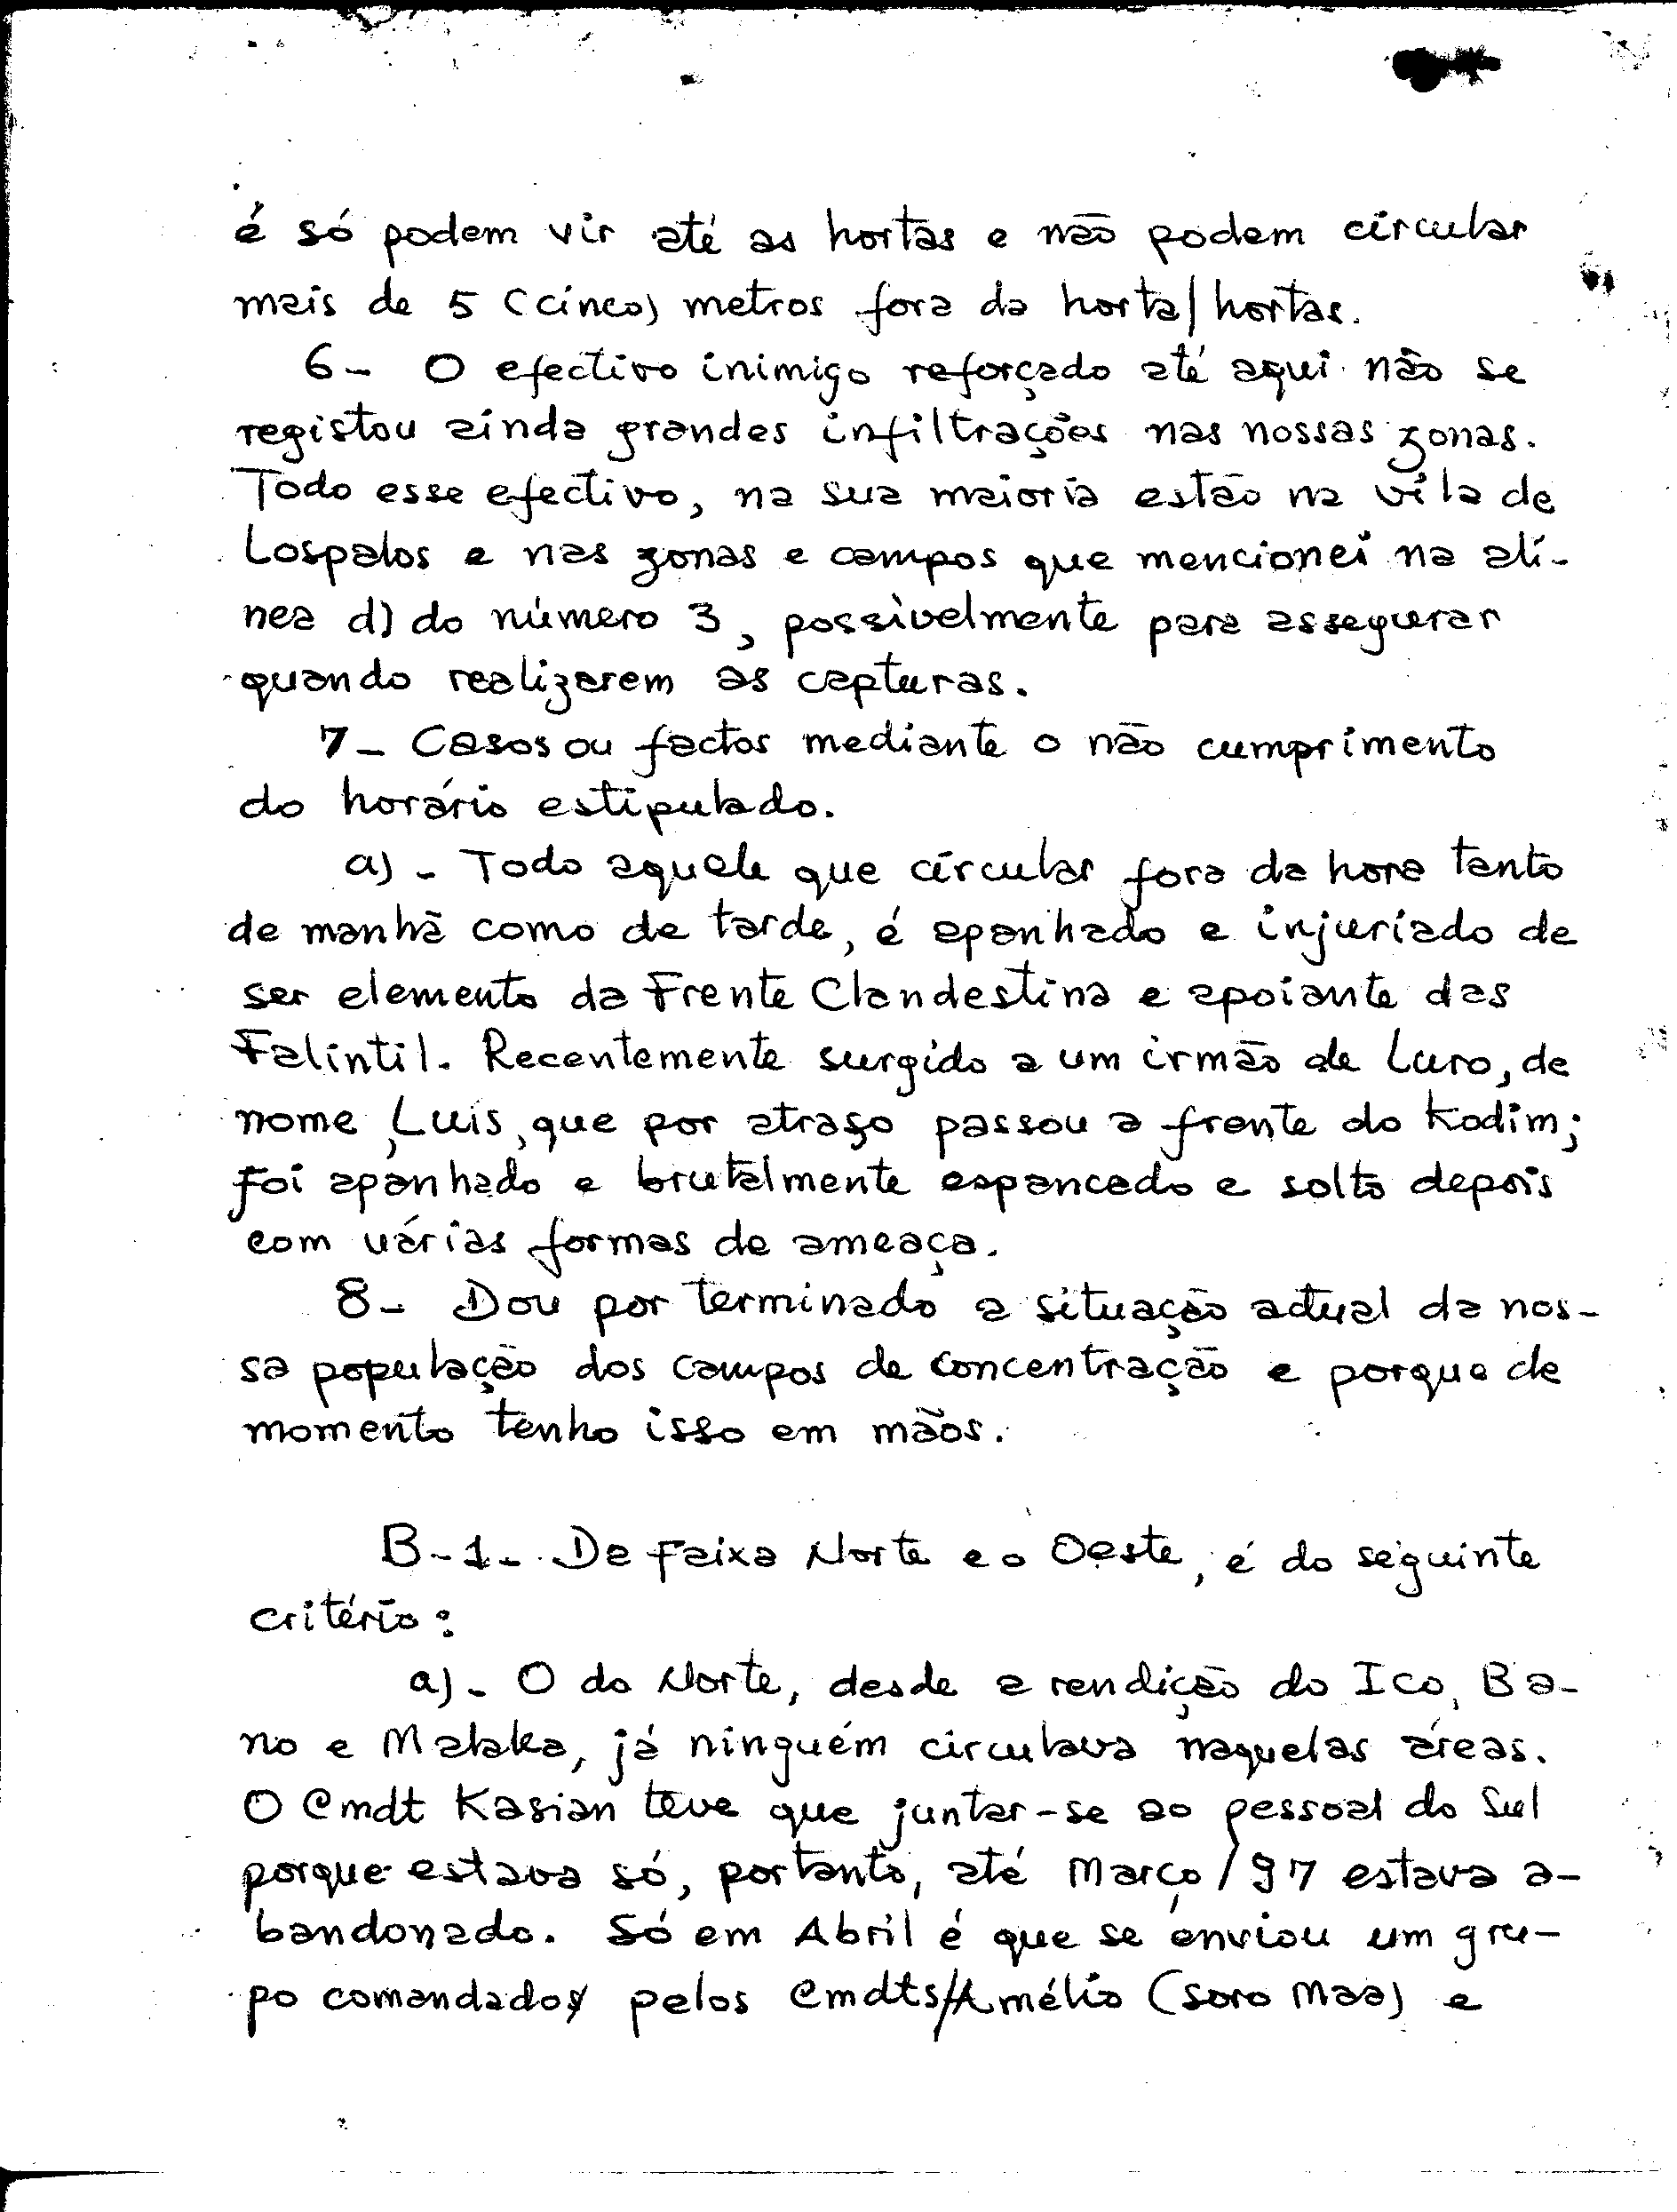 é só podem vir até as hortas e não podem circular
mais de 5 (cinco) metros fora da horta/hortas.
6- O efectivo inimigo reforçado até aqui não se
registou ainda grandes infiltrações nas nossas zonas.
Todo esse efectivo, na sua maioria estão na vila de
Lospalos e nas zonas e campos que mencionei na alí-
nea d) do número 3, possìvelmente para assegurar
quando realizarem as capturas.
7- Casos ou factos mediante o não cumprimento
do horário estipulado.
a)- Todo aquele que circular fora da hora tanto
de manhã como de tarde, é apanhado e injuriado de
ser elemento da Frente Clandestina e apoiante das
Falintil. Recentemente surgido a um irmão de Luro, de
nome, Luis, que por atraso passou a frente do Kodim;
foi apanhado e brutalmente espancado e solto depois
com várias formas de ameaça.
8- Dou por terminado a situação actual da nos-
sa população dos campos de concentração e porque de
momento tenho isso em mãos.
B-1-. Da faixa Norte e o Oeste, é do seguinte
critério:
a)- O do Norte, desde a rendição do Ico, Ba-
no e Malaka, já ninguém circulava naquelas áreas.
O Cmdt Kasian teve que juntar-se ao pessoal do Sul
porque estava só, portanto, até Março/97 estava a-
bandonado. Só em Abril é que se enviou um gru-
po comandado pelos Cmdts/Amélio (Soro Maa) e